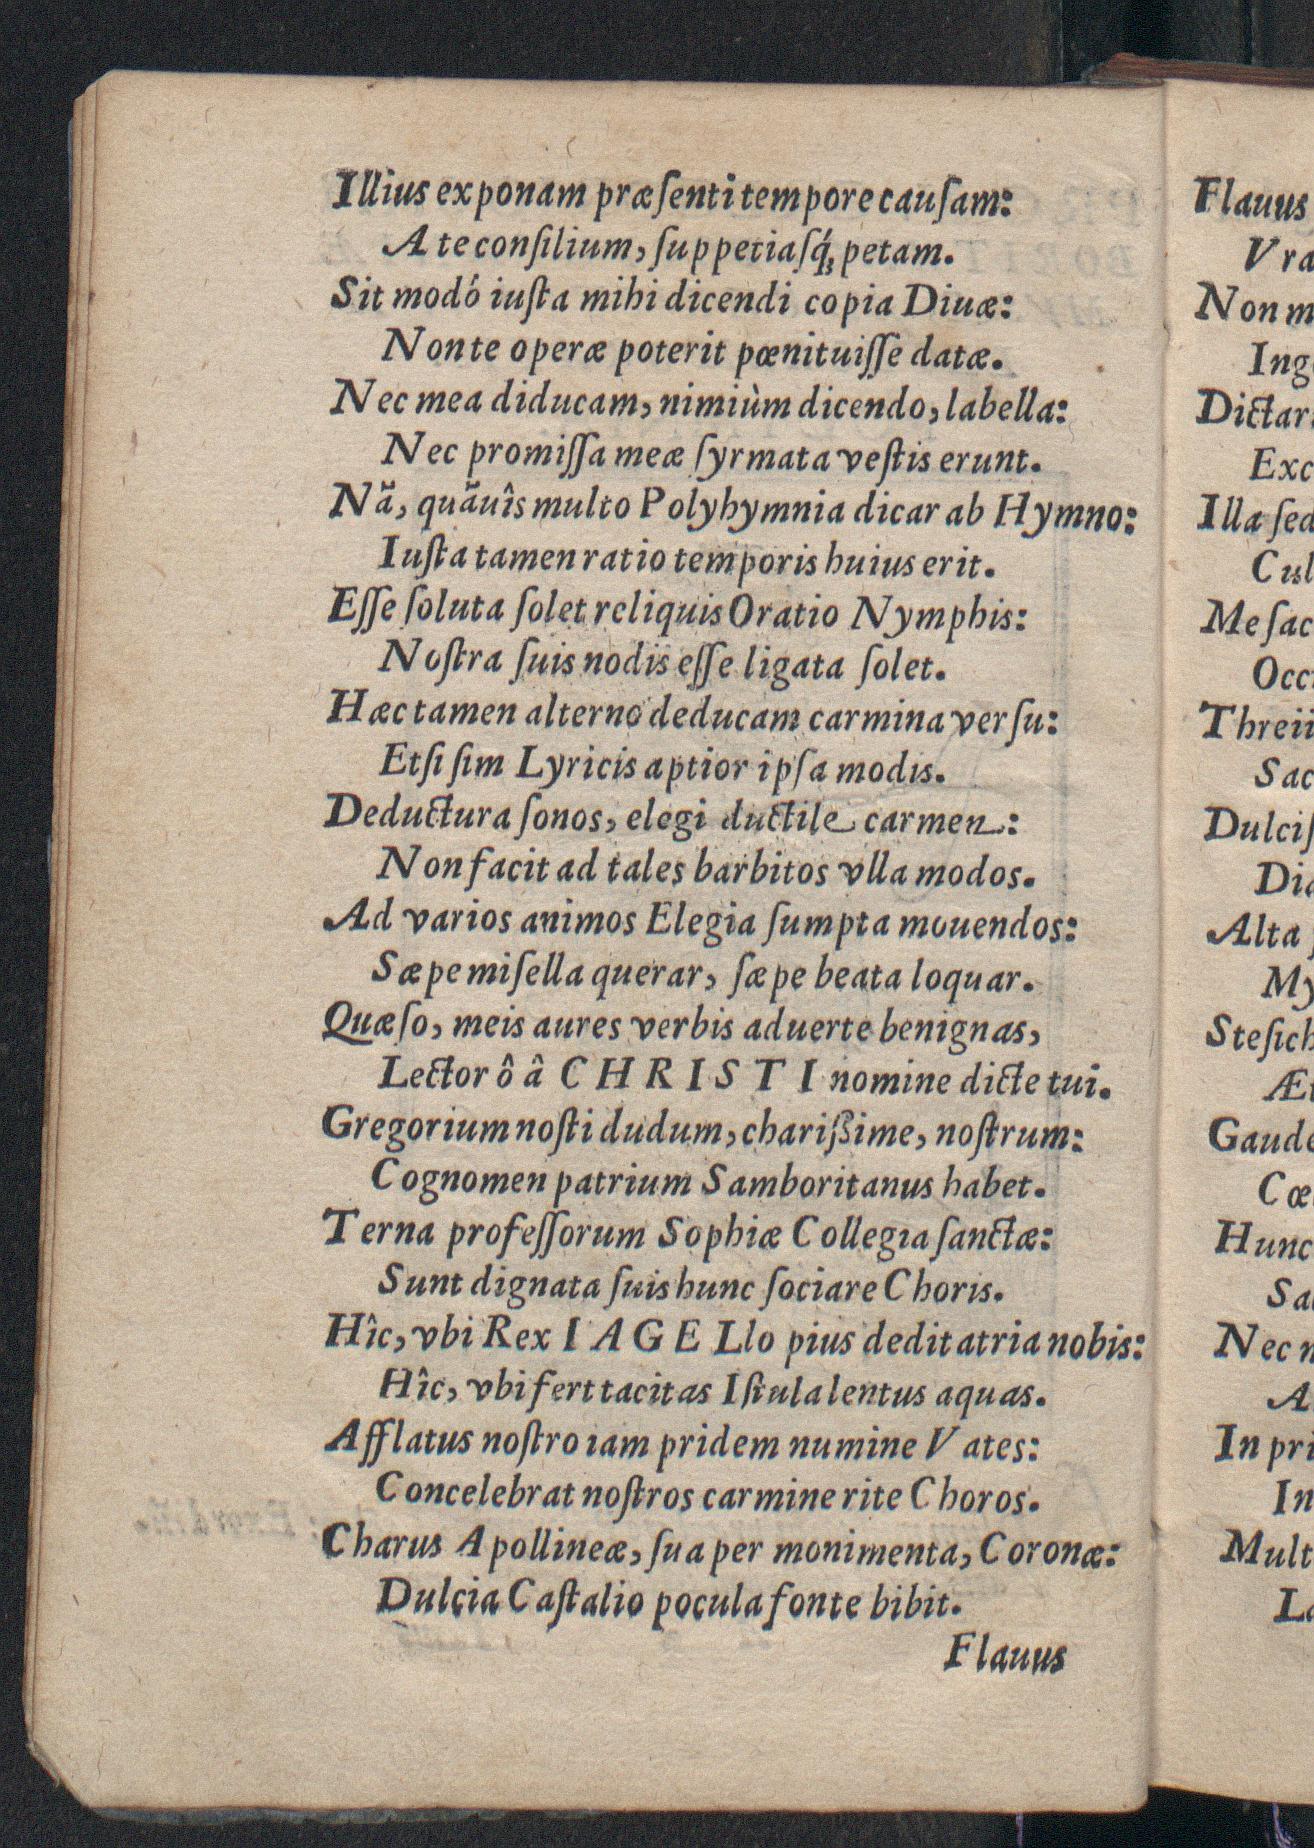 Illius exponam præſenti tempore cauſam:
A te conſilium, ſuppetiaſq́; petam.
Sit modó iuſta mihi dicendi copia Diuæ:
Non te operæ poterit pœnituiſſe datæ.
Nec mea diducam, nimiùm dicendo, labella:
Nec promiſſa meæ ſyrmata veſtis erunt.
Nã, quãuîs multo Polyhymnia dicar ab Hymno:
Iuſta tamen ratio temporis huius erit.
Eſſe ſoluta ſolet reliquis Oratio Nymphis:
Noſtra ſuis nodis eſſe ligata ſolet.
Hæc tamen alterno deducam carmina verſu:
Etſi ſim Lyricis aptior ipſa modis.
Deductura ſonos, elegi ductile carmen:
Non facit ad tales barbitos vlla modos.
Ad varios animos Elegia ſumpta mouendos:
Sæpe miſella querar, ſæpe beata loquar.
Quæſo, meis aures verbis aduerte benignas,
Lector ô â CHRISTI nomine dicte tui.
Gregorium noſti dudum, chariſsime, noſtrum:
Cognomen patrium Samboritanus habet.
Terna profeſſorum Sophiæ Collegia ſanctæ:
Sunt dignata ſuis hunc ſociare Choris.
Hîc, vbi Rex IAGELlo pius dedit atria nobis:
Hîc, vbi fert tacitas Iſtula lentus aquas.
Afflatus noſtro iam pridem numine Vates:
Concelebrat noſtros carmine rite Choros.
Charus Apollineæ, ſua per monimenta, Coronæ:
Dulcia Caſtalio pocula fonte bibit.
Flauus
Flauus
Non m
Illa
Me
Alta
Hunc
Nec